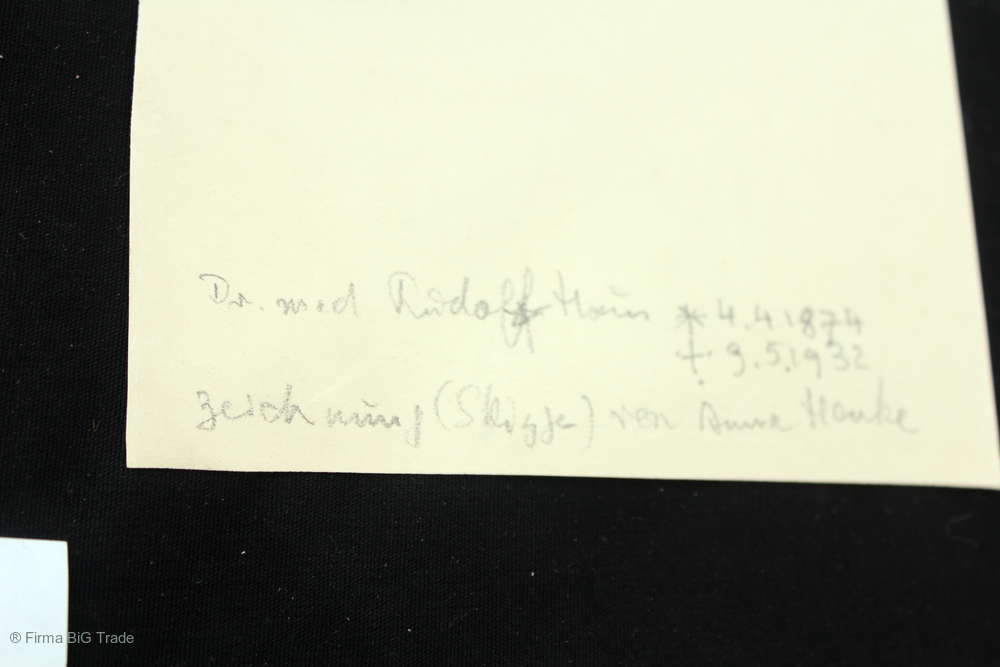 Dr. med Rudolf * 4.4.1874
† 9.5.1932
Zeichnung (Skizze) von Anna Hanke
® Firma BiG Trade